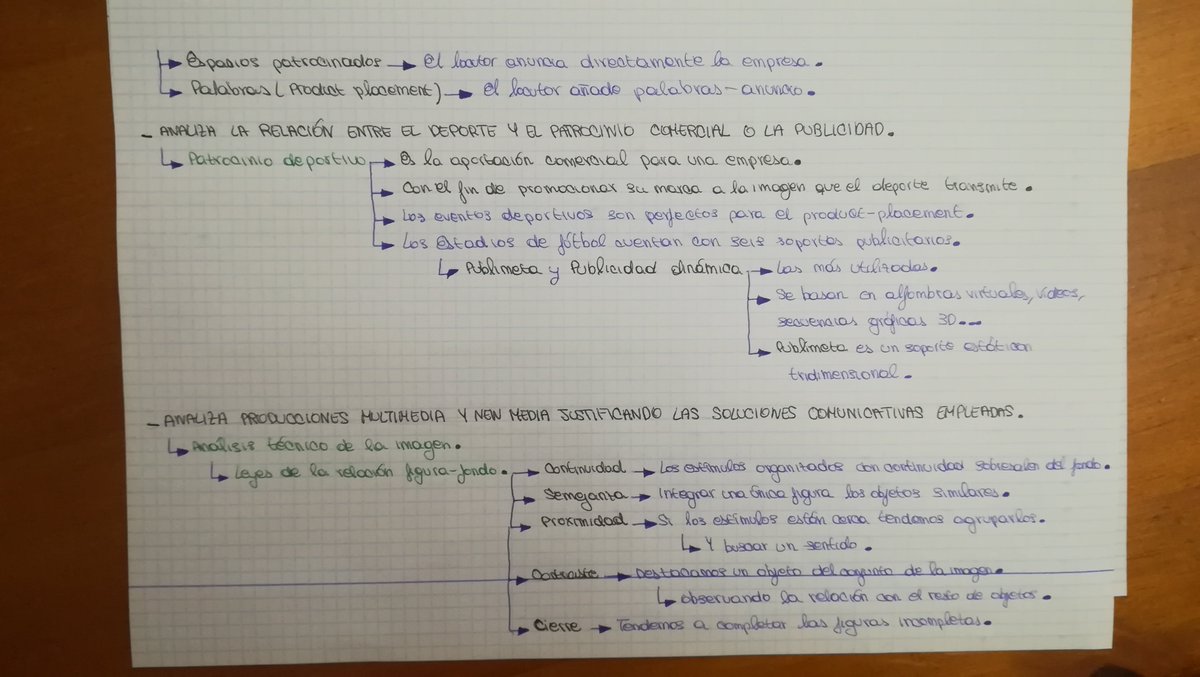 Espacios patrocinados → el locutor anuncia directamente la empresa.
Palabras (Product placement) → el locutor añade palabras-anuncio.
- ANALIZA LA RELACIÓN ENTRE EL DEPORTE Y EL PATROCINIO COMERCIAL O LA PUBLICIDAD.
Patrocinio deportivo → es la aportación comercial para una empresa.
→ Con el fin de promocionar su marca a la imagen que el deporte transmite.
→ Los eventos deportivos son perfectos para el product-placement.
→ Los estadios de fútbol cuentan con seis soportes publicitarios.
Publimeta y Publicidad dinámica → Las más utilizadas.
→ Se basan en alfombras virtuales, vídeos,
secuencias gráficas 3D...
→ Publimeta es un soporte estático con
tridimensional.
- ANALIZA PRODUCCIONES MULTIMEDIA Y NEW MEDIA JUSTIFICANDO LAS SOLUCIONES COMUNICATIVAS EMPLEADAS.
Análisis técnico de la imagen.
Leyes de la relación figura-fondo. → Continuidad → Los estímulos organizados con continuidad sobresalen del fondo.
→ Semejanza → Integrar una única figura los objetos similares.
→ Proximidad → Si los estímulos están cerca tendemos agruparlos.
Y buscar un sentido.
→ Contraste → Destacamos un objeto del conjunto de la imagen.
observando la relación con el resto de objetos.
→ Cierre → Tendemos a completar las figuras incompletas.